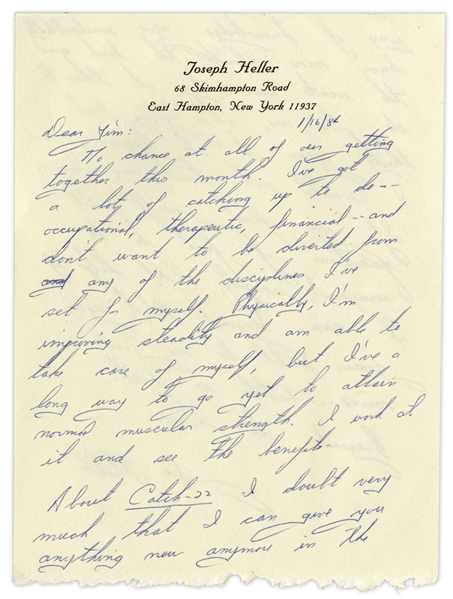 Joseph Heller
68 Skimhampton Road
East Hampton, New York 11937
1/16/86
Dear Jim:
No chance at all of our getting
together this month. I've got
a lot of catching up to do--
occupational, therapeutic, financial--and
don't want to be diverted from
any of the disciplines I've
set for myself. Physically, I'm
improving steadily and am able to
take care of myself, but I've a
long way to go yet to attain
normal muscular strength. I work at
it and see the benefits.
About Catch-22 I doubt very
much that I can give you
anything new anymore in the